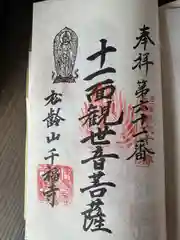 奉拝 第六十二番
十一面観世音菩薩
松齢山千福寺